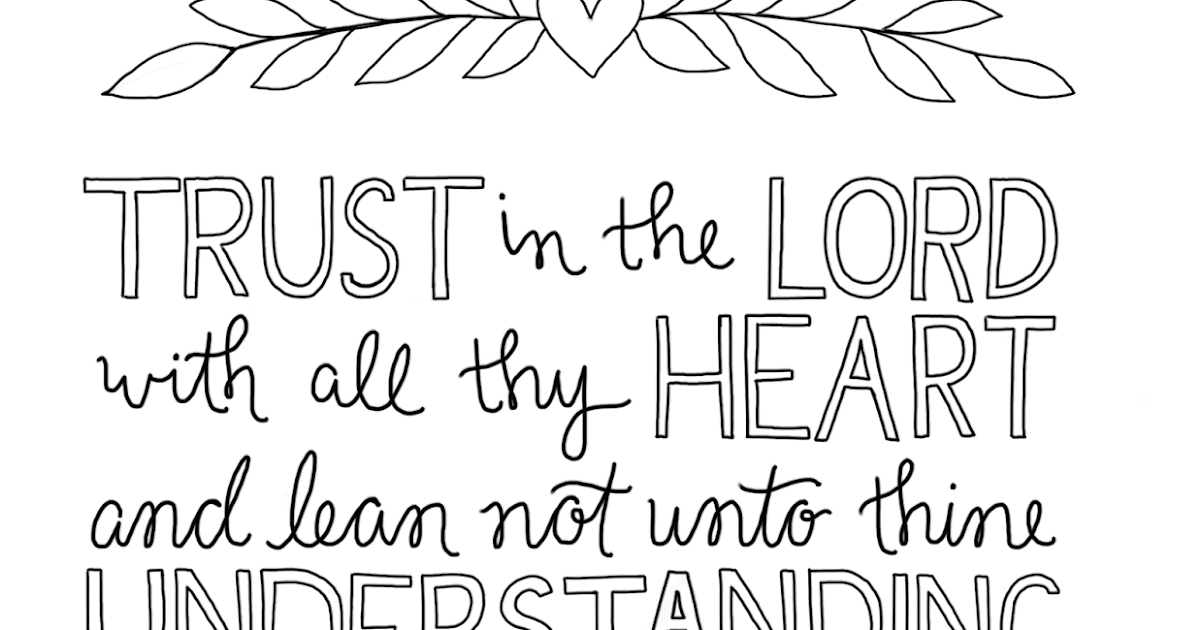 TRUST in the LORD
with all thy HEART
and lean not unto thine
UNDERSTANDING